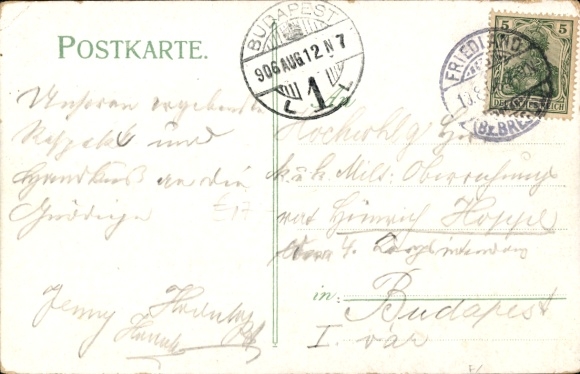 POSTKARTE.
BUDAPEST
906 AUG. 12 N 7
1
FRIEDLAND
(Bz. BRES
5 5
DEUTSCHES REICH
Unseren ergebensten
Respekt und
Handkuss an die
Gnädige
Jenny
Hochwohlg
k. u. k. Milt. Oberrechnungs
rat Heinrich Hoppe
in: Budapest
I. vár